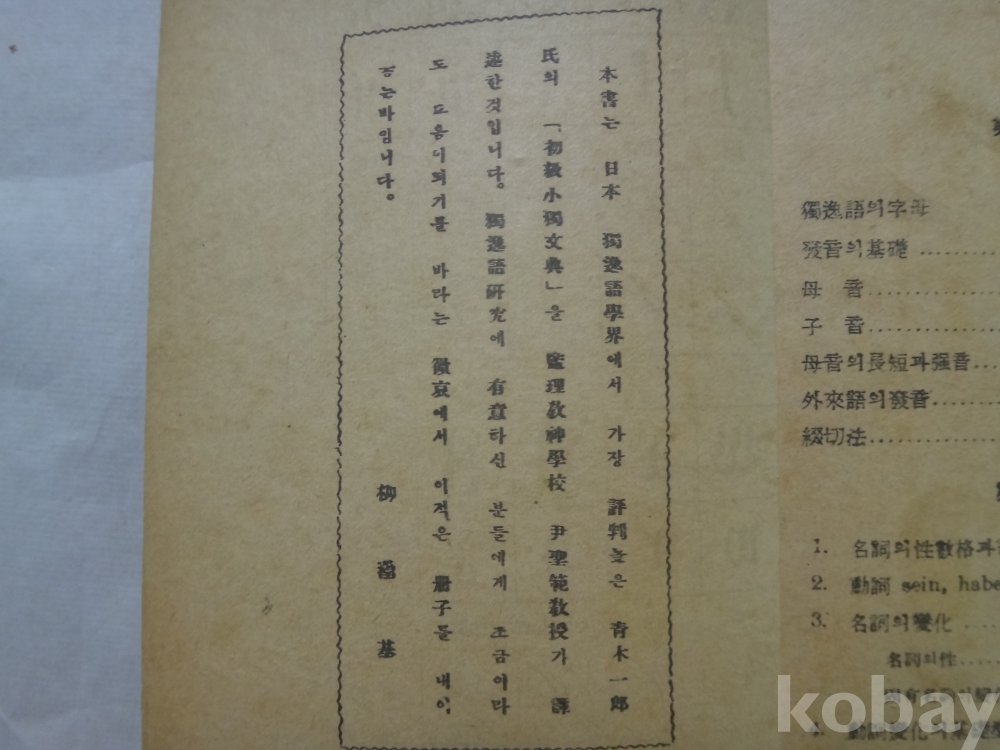 本書는 日本 獨逸語學界에서 가장 評判높은 青木一郎
氏의 「初級小獨文典」을 監理敎神學校 尹聖範敎授가 譯
述한것입니다。 獨逸語硏究에 有意하신 분들에게 조금이라
도 도움이되기를 바라는 微哀에서 이적은 册子를 내이
는바입니다。
柳 基
獨逸語의字母
發音의基礎
母 音
子 音
母音의長短과强音
外來語의發音
綴切法
1. 名詞의性數格과
2. 動詞 sein, habe
3. 名詞의變化
名詞의性
動詞變化의基礎
kobay